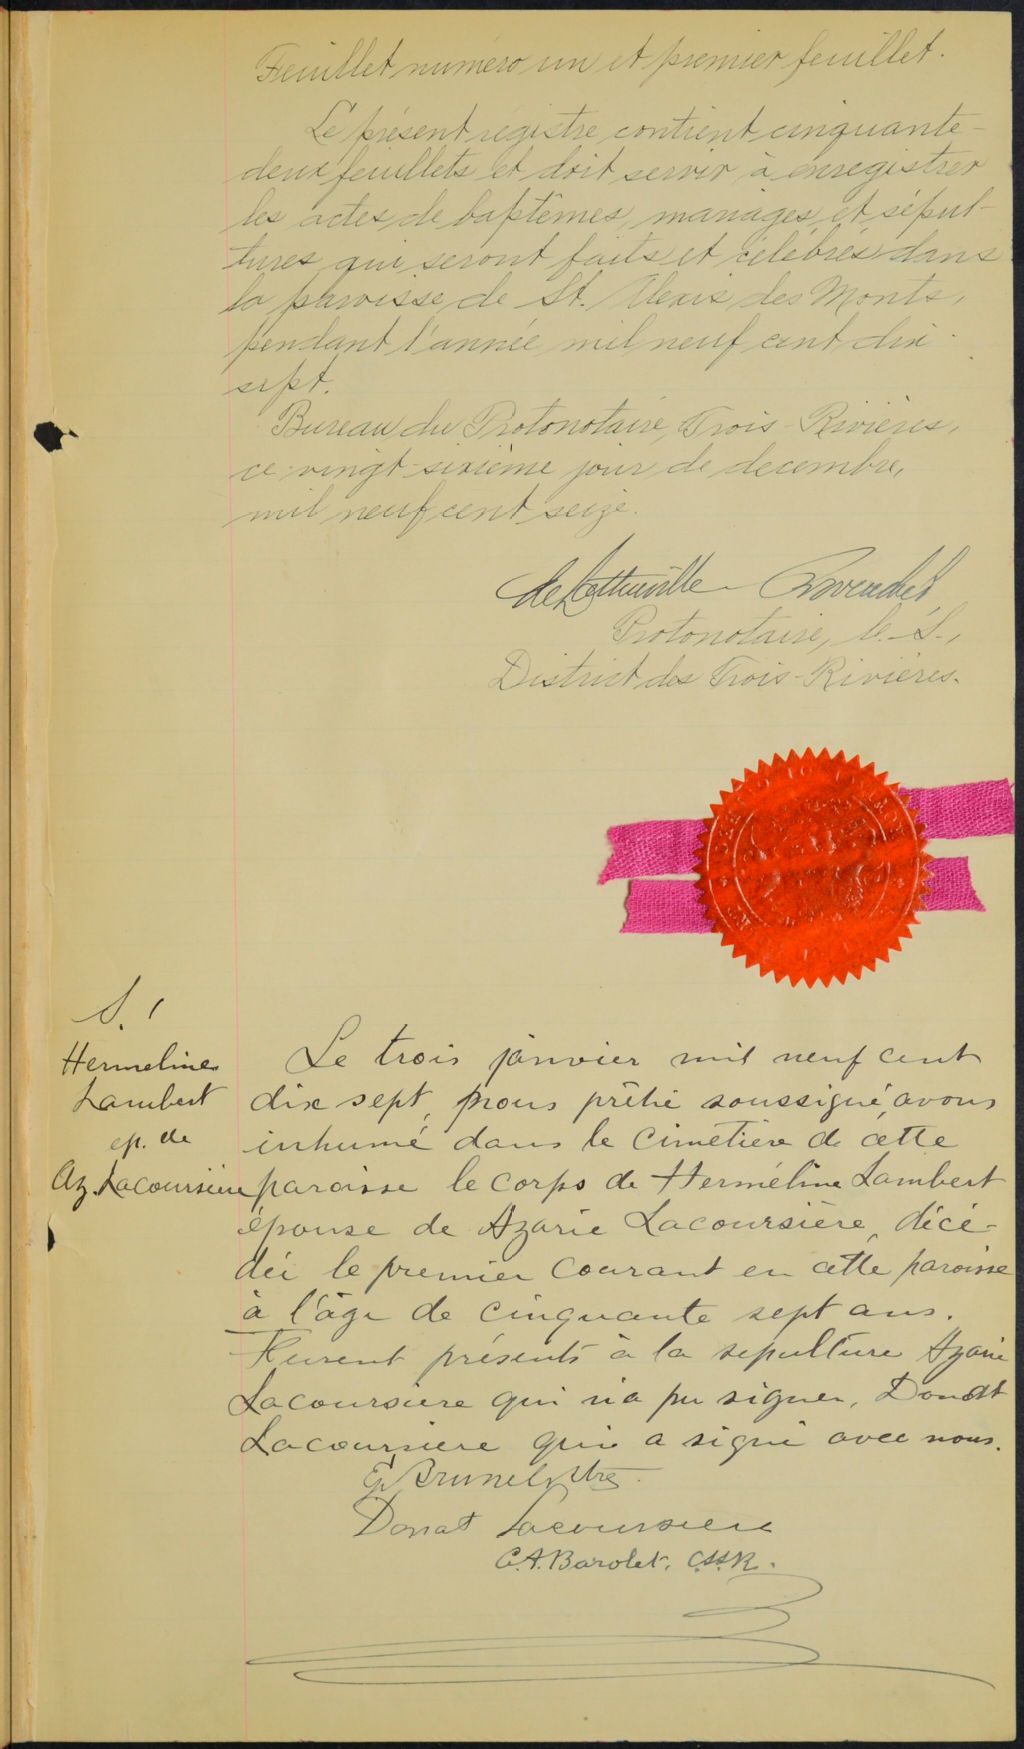 Feuillet numéro un et premier feuillet.
Le présent registre contient cinquante-
deux feuillets et doit servir à enregistrer
les actes de baptêmes, mariages et sépul-
tures qui seront faits et célébrés dans
la paroisse de St. Alexis des Monts,
pendant l'année mil neuf cent dix
sept.
Bureau du Protonotaire, Trois-Rivières,
ce vingt-sixième jour de decembre,
mil neuf cent seize.
Protonotaire, C.S.,
District des Trois-Rivières.
S. 1
Hermeline
Lambert
ep. de
Az. Lacoursière
Le trois janvier mil neuf cent
dix sept, nous prêtre soussigné, avons
inhumé dans le cimetière de cette
paroisse le corps de Herméline Lambert
épouse de Azarie Lacoursière, décé-
dée le premier courant en cette paroisse
à l'âge de cinquante sept ans.
Furent présents à la sepulture Azarie
Lacoursiere qui n'a pu signer, Donat
Lacoursiere qui a signé avec nous.
Brunel, Ptre
Donat Lacoursiere
C.A. Barolet, C.SS.R.